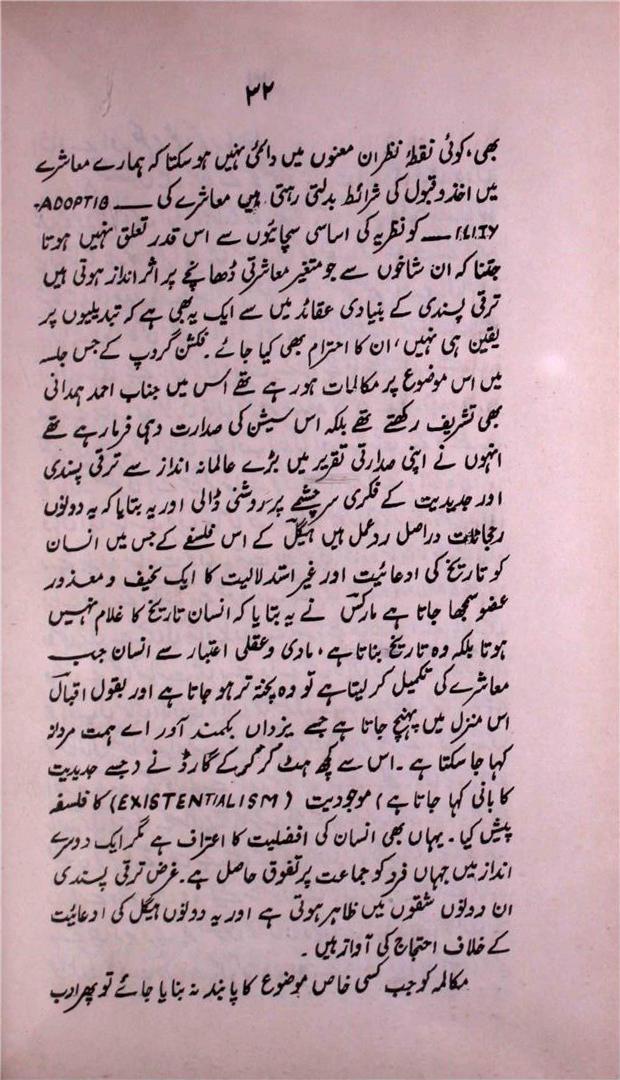 ۳۲
بھی، کوئی نقطۂ نظر ان معنوں میں دائمی نہیں ہو سکتا کہ ہمارے معاشرے
میں اخذ و قبول کی شرائط بدلتی رہتی ہیں معاشرے کی — ADOPTIB-
ILITY — کو نظریہ کی اساسی سچائیوں سے اس قدر تعلق نہیں ہوتا
جتنا کہ ان شاخوں سے جو متغیر معاشرتی ڈھانچے پر اثر انداز ہوتی ہیں
ترقی پسندی کے بنیادی عقائد میں سے ایک یہ بھی ہے کہ تبدیلیوں پر
یقین ہی نہیں، ان کا احترام بھی کیا جائے۔ فکشن گروپ کے جس جلسہ
میں اس موضوع پر مکالمات ہو رہے تھے اس میں جناب احمد ہمدانی
بھی تشریف رکھتے تھے بلکہ اس سیشن کی صدارت وہی فرما رہے تھے
انہوں نے اپنی صدارتی تقریر میں بڑے عالمانہ انداز سے ترقی پسندی
اور جدیدیت کے فکری سرچشمے پر روشنی ڈالی اور یہ بتایا کہ یہ دونوں
رجحانات دراصل ردعمل ہیں ہیگل کے اس فلسفے کے جس میں انسان
کو تاریخ کی ادعائیت اور غیر استدلالیت کا ایک نحیف و معذور
عضو سمجھا جاتا ہے مارکس نے یہ بتایا کہ انسان تاریخ کا غلام نہیں
ہوتا بلکہ وہ تاریخ بناتا ہے، مادی و عقلی اعتبار سے انسان جب
معاشرے کی تکمیل کر لیتا ہے تو وہ پختہ تر ہو جاتا ہے اور بقول اقبالؔ
اس منزل میں پہنچ جاتا ہے جسے یزداں بکمند آور اے ہمت مردانہ
کہا جا سکتا ہے۔ اس سے کچھ ہٹ کر کرکے گارڈ نے (جسے جدیدیت
کا بانی کہا جاتا ہے) موجودیت (EXISTENTIALISM) کا فلسفہ
پیش کیا۔ یہاں بھی انسان کی افضلیت کا اعتراف ہے مگر ایک دوسرے
انداز میں جہاں فرد کو جماعت پر تفوق حاصل ہے۔ غرض ترقی پسندی
ان دونوں شقوں میں ظاہر ہوتی ہے اور یہ دونوں ہیگل کی ادعائیت
کے خلاف احتجاج کی آواز ہیں۔
مکالمہ کو جب کسی خاص موضوع کا پابند نہ بنایا جائے تو پھر ادب